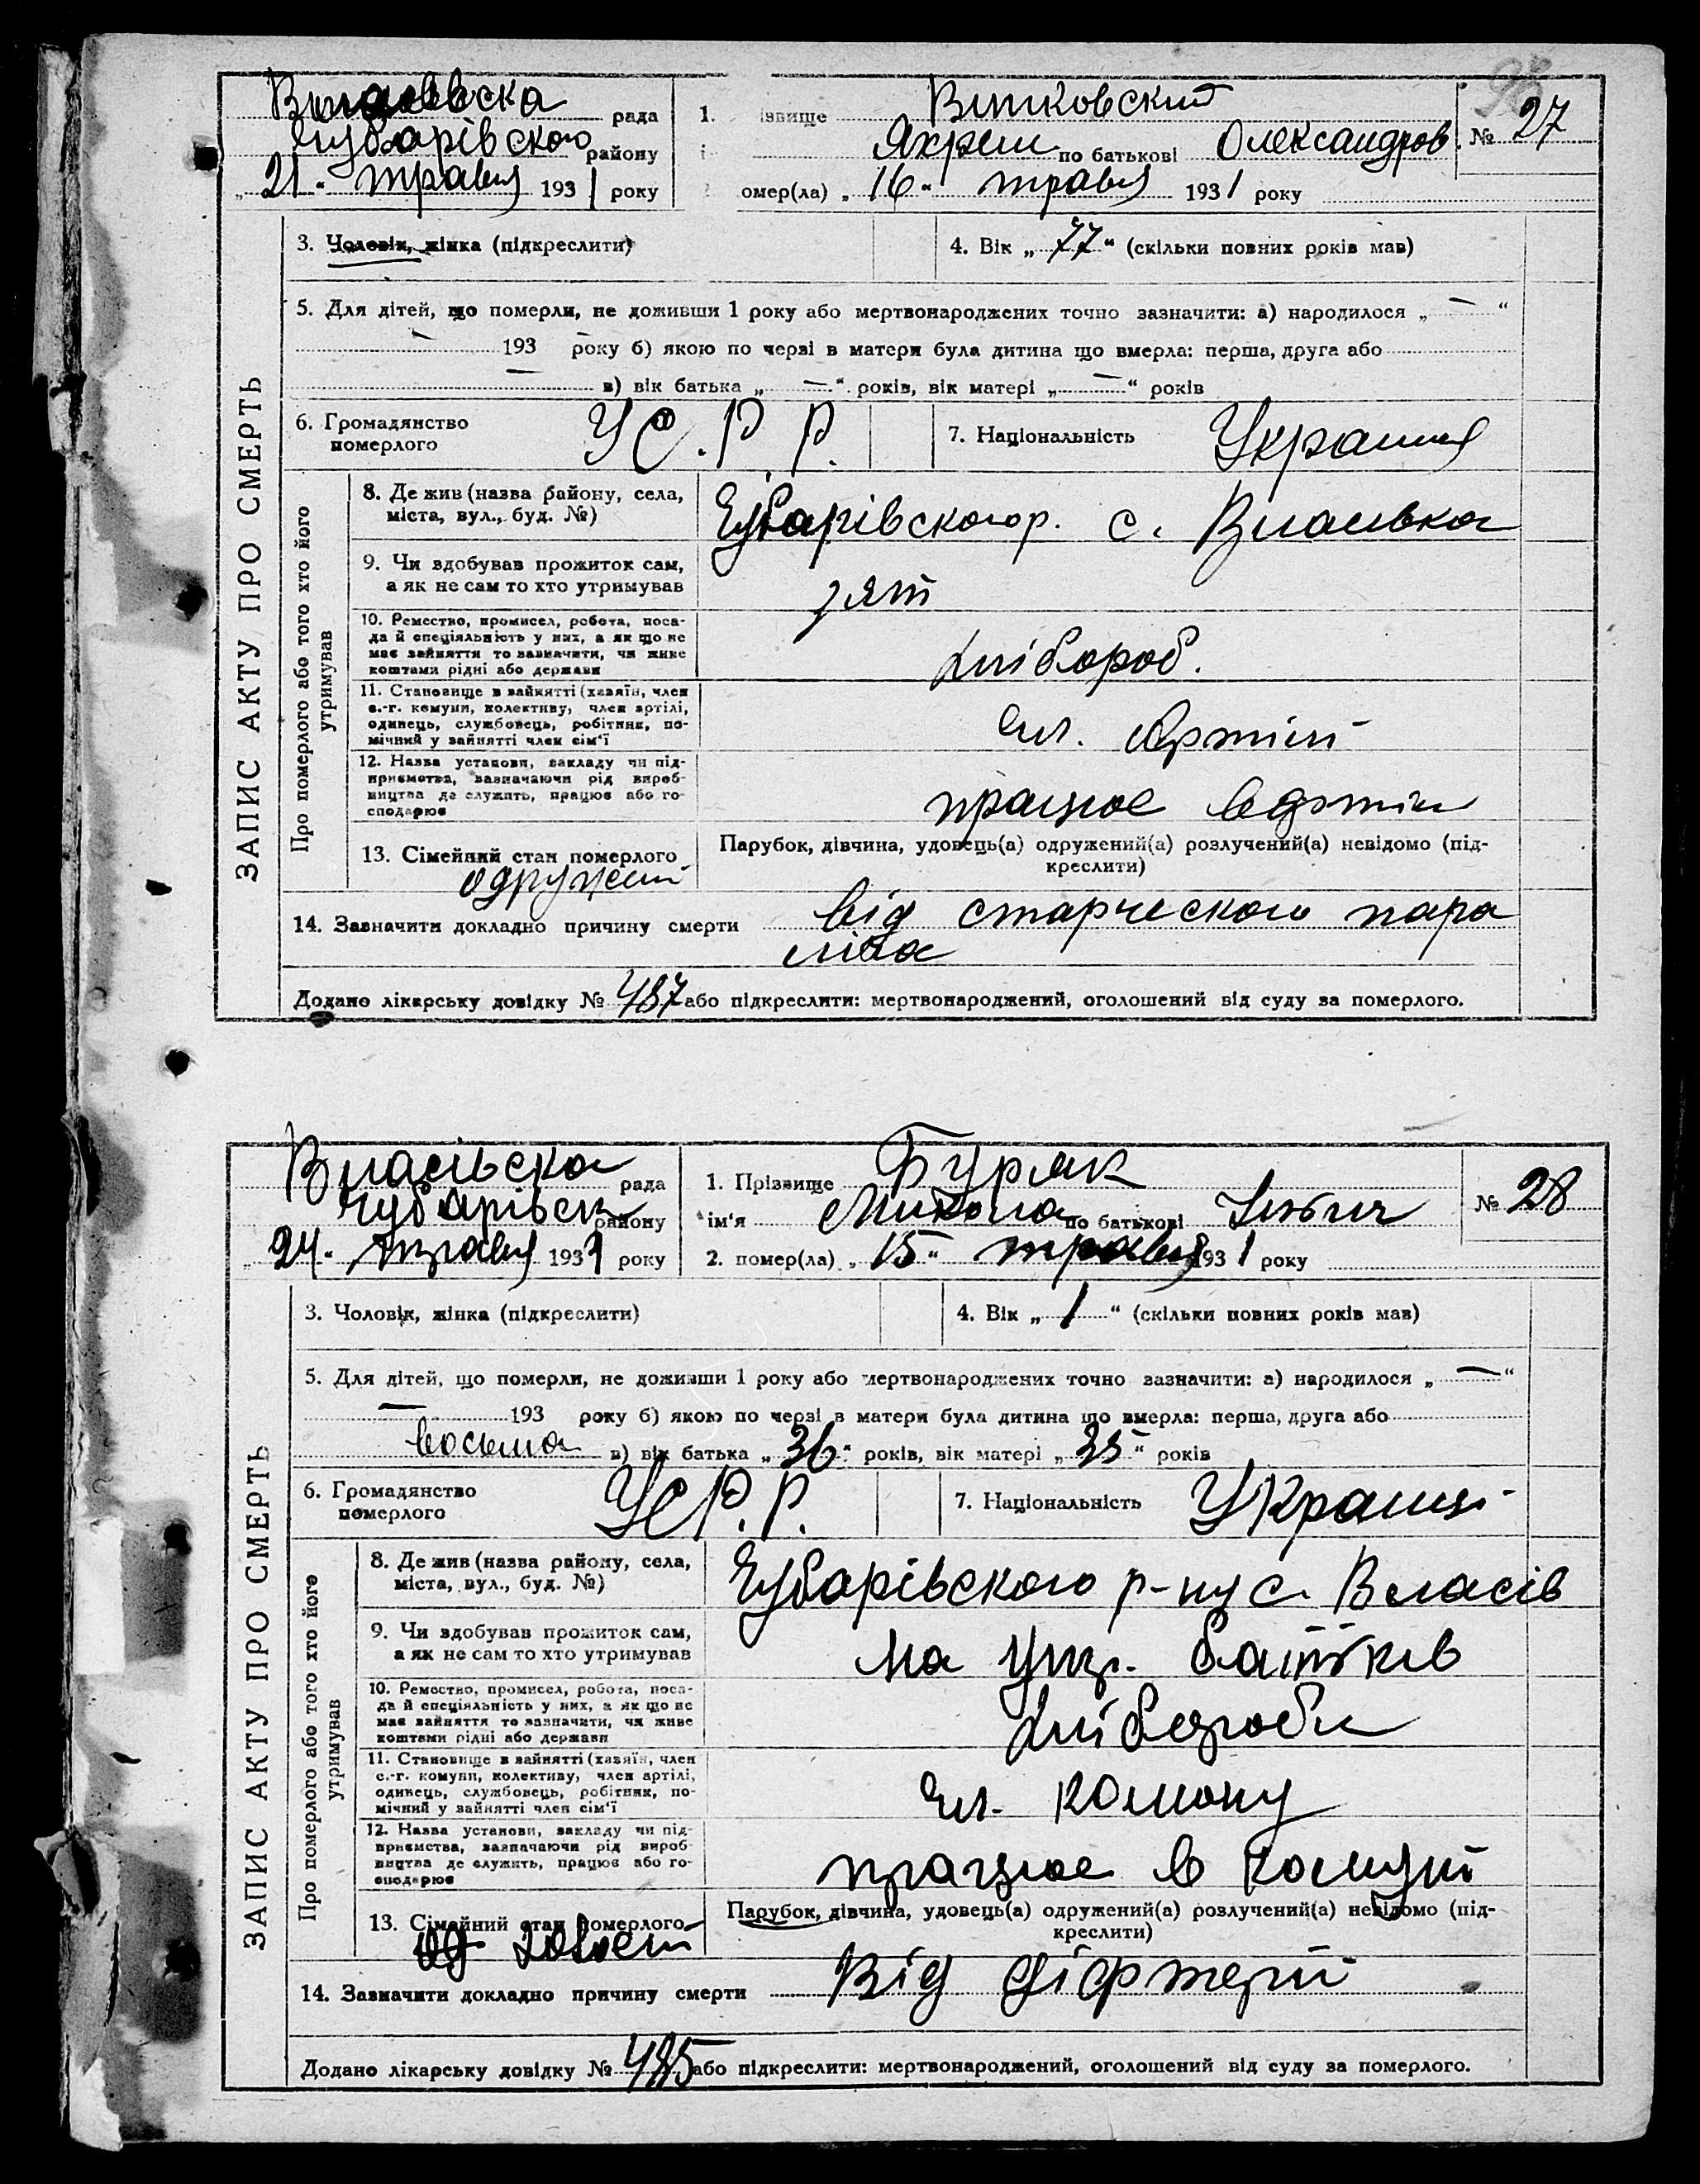 Власівська рада
Чубарівського району
„21“ травня 1931 року
1. ізвище Витковский
Яхрем по батькові Олександров.
№ 27
омер(ла) „16“ травня 1931 року
ЗАПИС АКТУ ПРО СМЕРТЬ
3. Чоловік, жінка (підкреслити)
4. Вік „77“ (скільки повних років мав)
5. Для дітей, що померли, не доживши 1 року або мертвонароджених точно зазначити: а) народилося „—“
— 193 року б) якою по черзі в матери була дитина що вмерла: перша, друга або
— в) вік батька „—“ років, вік матері „—“ років
6. Громадянство
померлого
У.С.Р.Р.
7. Національність
Україн
Про померлого або того хто його
утримував
8. Де жив (назва району, села,
міста, вул., буд. №)
Чубарівского р. с. Власівка
9. Чи здобував прожиток сам,
а як не сам то хто утримував
зят
10. Ремество, промисел, робота, поса-
да й спеціяльність у них, а як що не
має зайняття то зазначити, чи живе
коштами рідні або держави
хлібороб.
11. Становище в зайнятті (хазяїн, член
с.-г. комуни, колективу, член артілі,
одинець, службовець, робітник, по-
мічний у зайнятті член сім'ї
чл. Артіли
12. Назва установи, закладу чи під-
приємства, зазначаючи рід вироб-
ництва де служить, працює або го-
сподарює
працює
13. Сімейний стан померлого
одружений
Парубок, дівчина, удовець(а) одружений(а) розлучений(а) невідомо (під-
креслити)
14. Зазначити докладно причину смерти
від старческого пара
ліча
Додано лікарську довідку № 487 або підкреслити: мертвонароджений, оголошений від суду за померлого.
Власівска рада
Чубарівськ району
„24“ травня 1931 року
1. Прізвище Буряк
ім'я Микола по батькові
№ 28
2. помер(ла) „15“ травня 1931 року
ЗАПИС АКТУ ПРО СМЕРТЬ
3. Чоловік, жінка (підкреслити)
4. Вік „1“ (скільки повних років мав)
5. Для дітей, що померли, не доживши 1 року або мертвонароджених точно зазначити: а) народилося „—“
— 193 року б) якою по черзі в матери була дитина що вмерла: перша, друга або
восьма в) вік батька „36“ років, вік матері „35“ років
6. Громадянство
померлого
УСР.Р.
7. Національність
Украинці
Про померлого або того хто його
утримував
8. Де жив (назва району, села,
міста, вул., буд. №)
Чубарівского р-ну с. Власів
9. Чи здобував прожиток сам,
а як не сам то хто утримував
на утр. батьків
10. Ремество, промисел, робота, поса-
да й спеціяльність у них, а як що не
має зайняття то зазначити, чи живе
коштами рідні або держави
хлібороби
11. Становище в зайнятті (хазяїн, член
с.-г. комуни, колективу, член артілі,
одинець, службовець, робітник, по-
мічний у зайнятті член сім'ї
чл. комони
12. Назва установи, закладу чи під-
приємства, зазначаючи рід вироб-
ництва де служить, працює або го-
сподарює
працює в комуні
13. Сімейний стан померлого
Парубок, дівчина, удовець(а) одружений(а) розлучений(а) невідомо (під-
креслити)
14. Зазначити докладно причину смерти
Від дифтерії
Додано лікарську довідку № 485 або підкреслити: мертвонароджений, оголошений від суду за померлого.